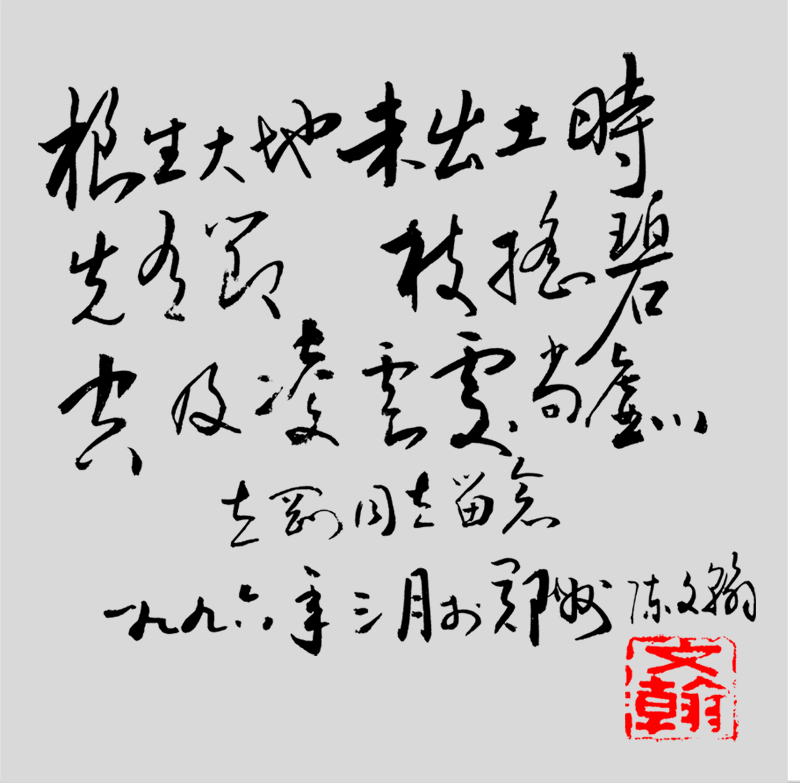 根生大地未出土時
先有節 枝搖碧
空及凌雲處尚虛心
志剛同志留念
一九九六年三月於鄭州 陈文翰
文翰